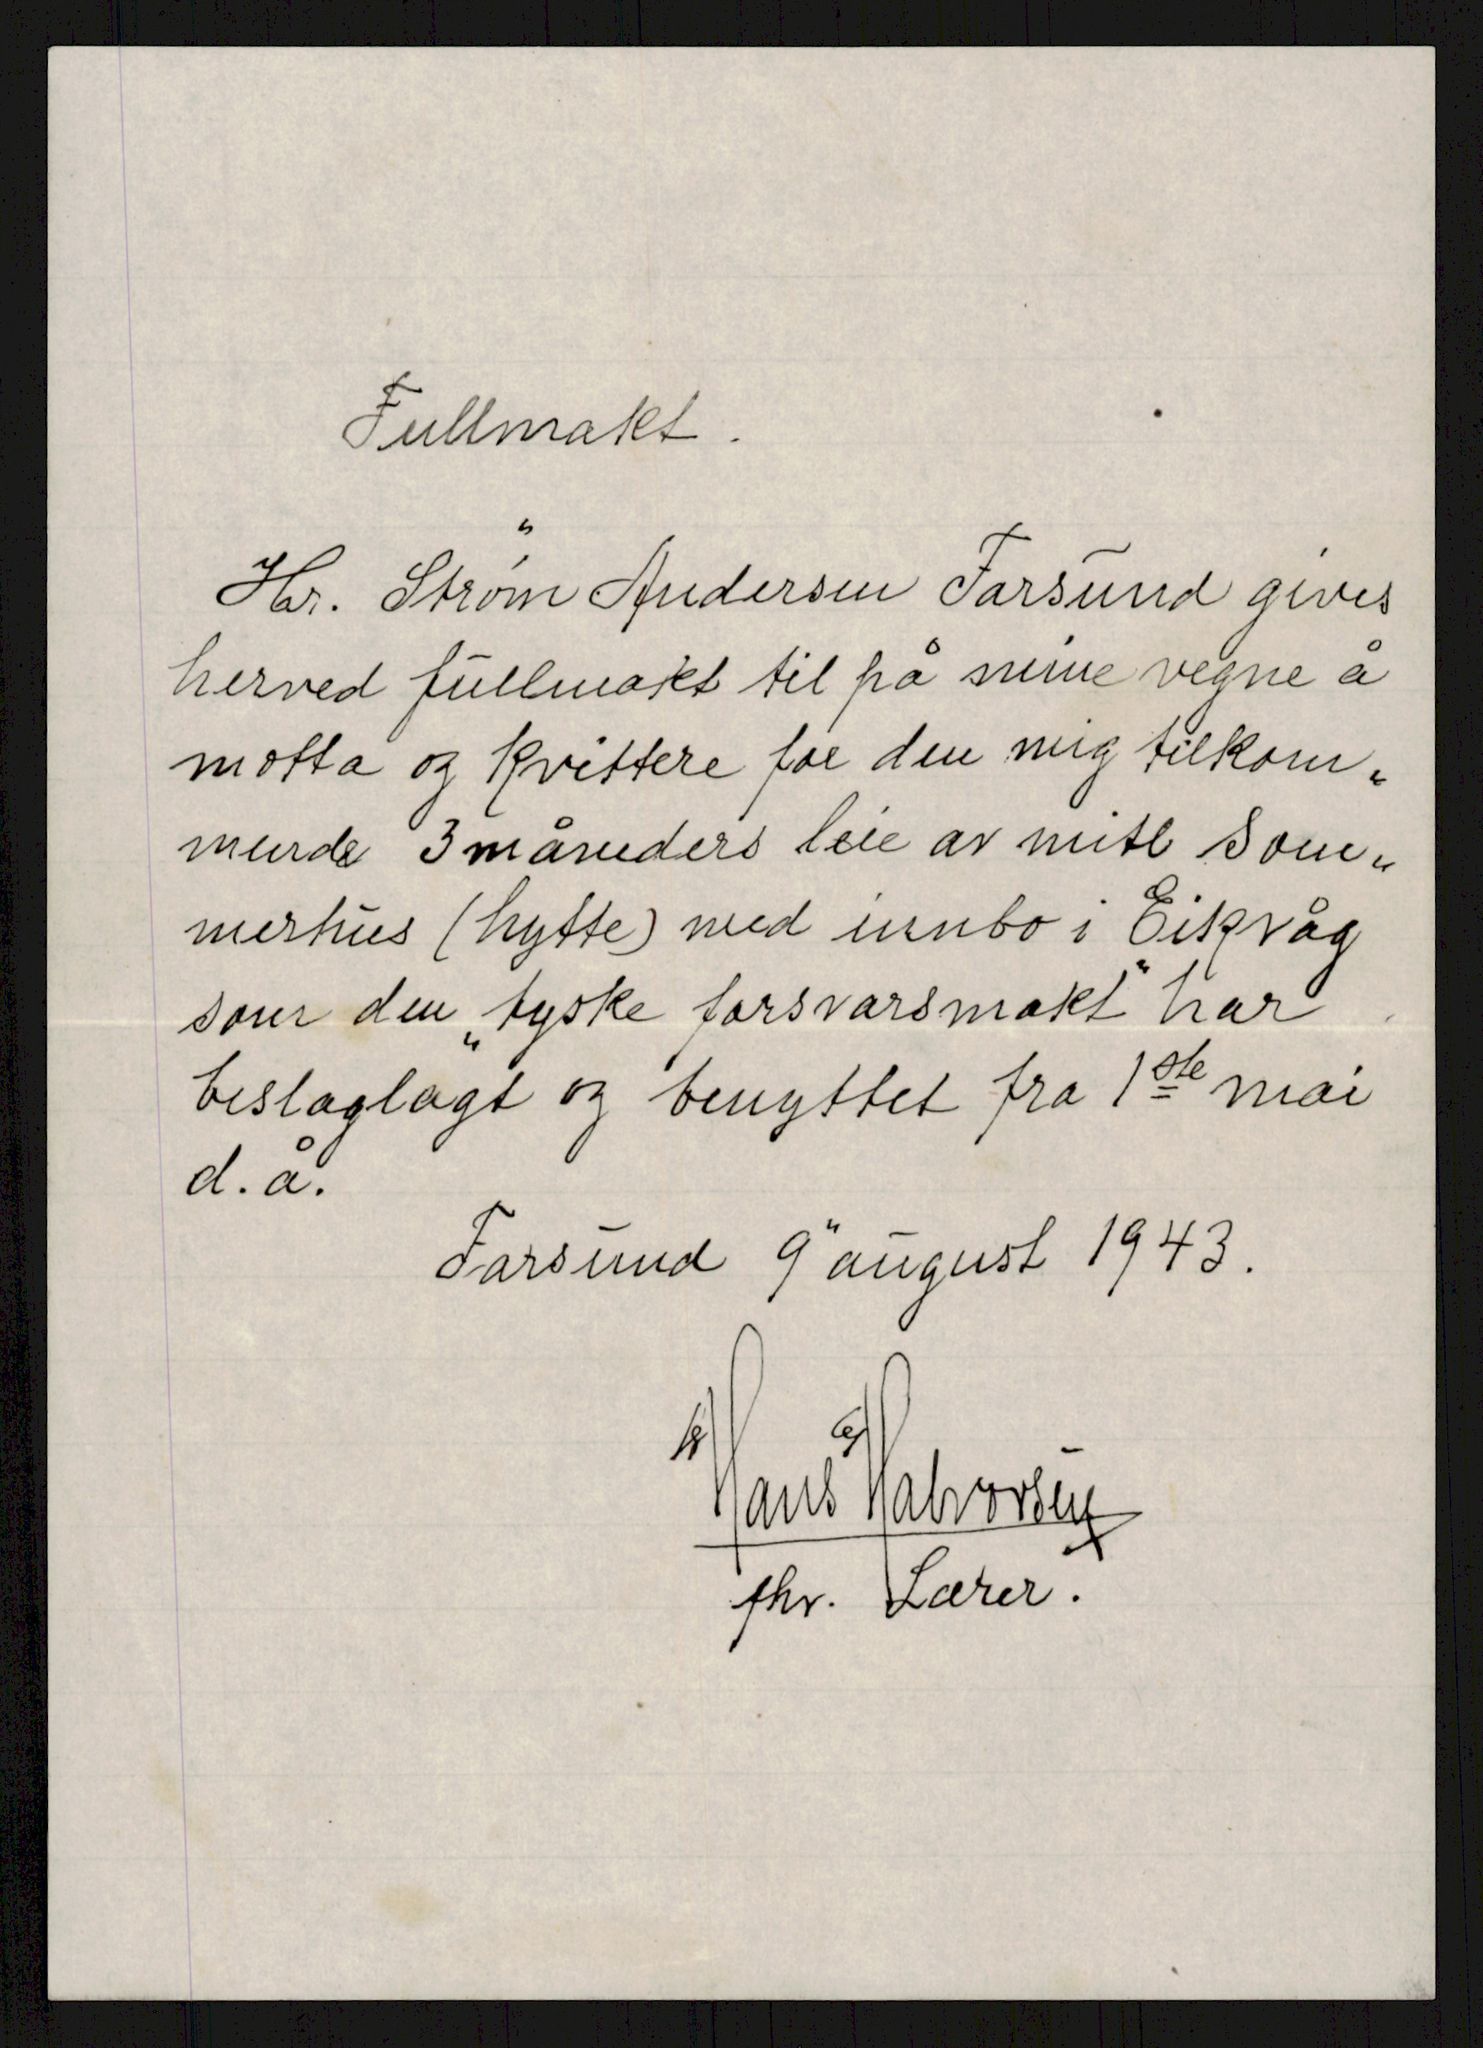 Fullmakt.
Hr. Strøm Andersen Farsund gives
herved fullmakt til på mine vegne å
motta og kvittere for den mig tilkom„
mende 3 måneders leie av mitt Som„
merhus (hytte) med innbo i Eikvåg
som den „tyske forsvarsmakt" har
beslaglagt og benyttet fra 1ste mai
d. å.
Farsund 9" august 1943.
Hans Halvorsen
fhv. Lærer.